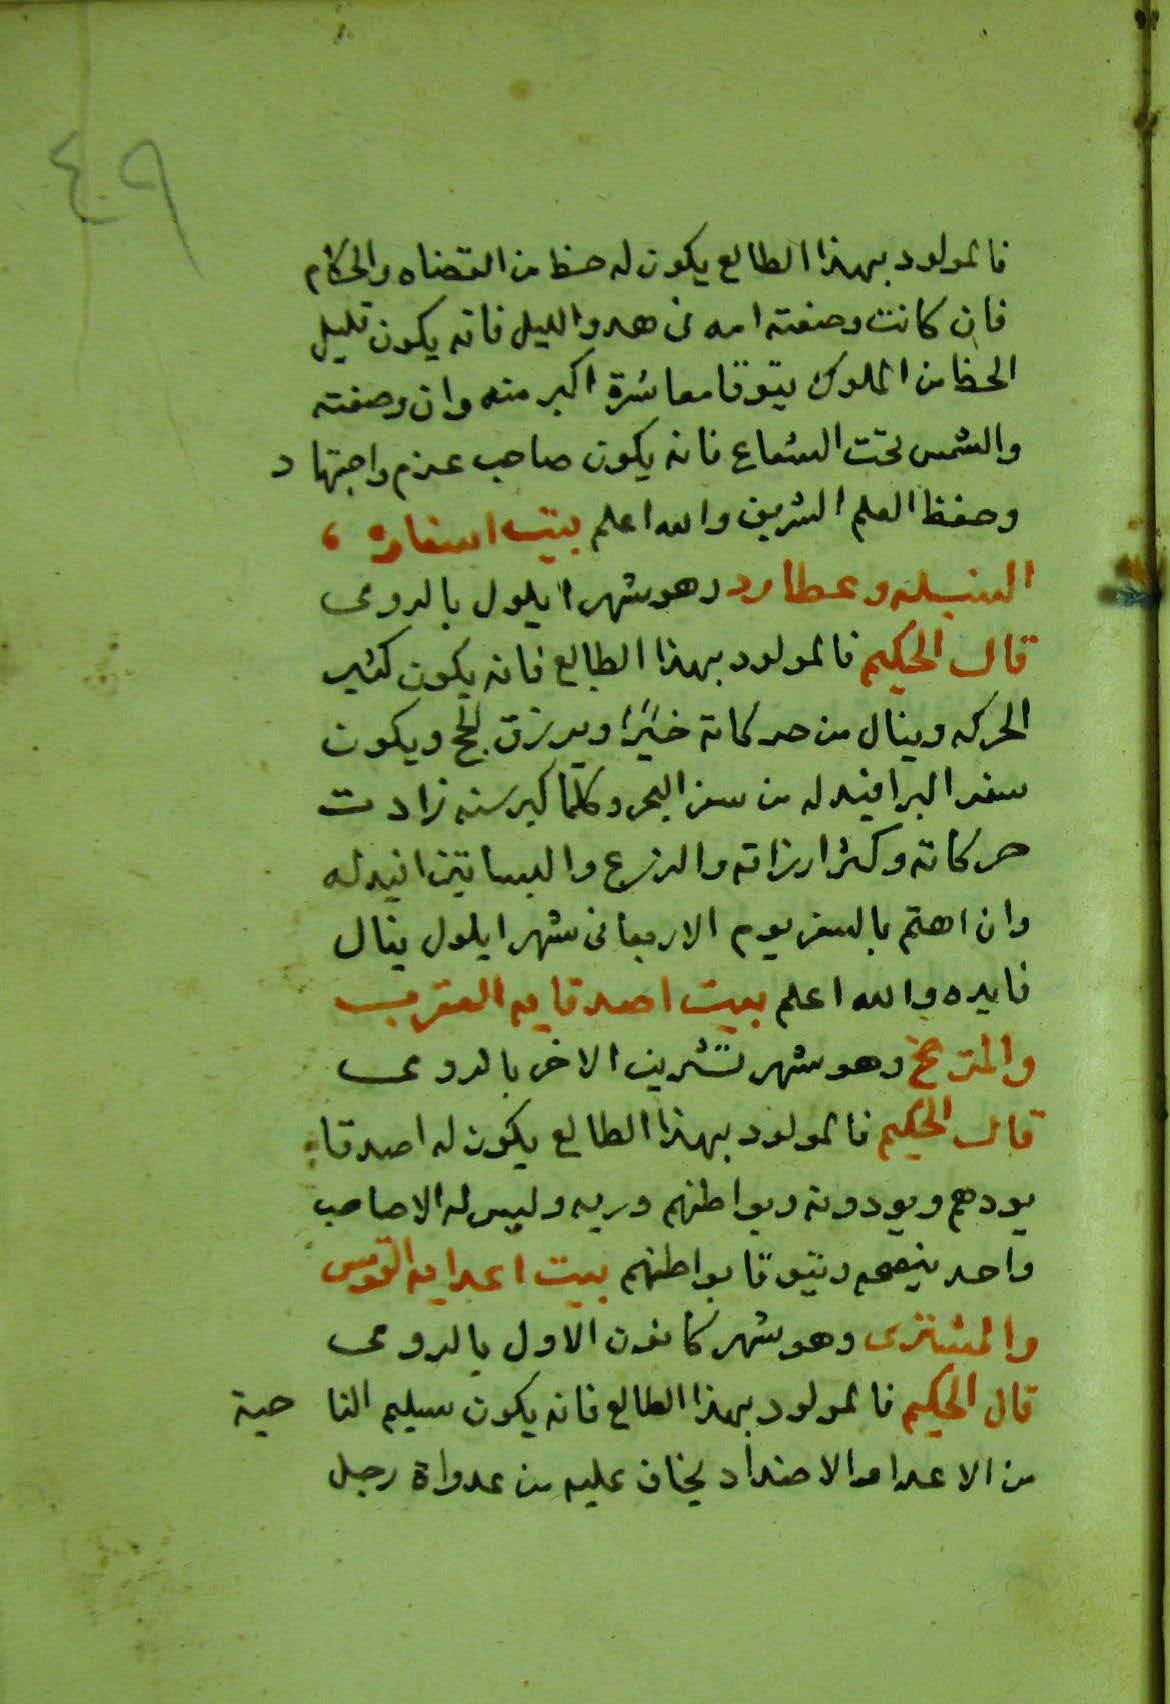 ٤٩
فالمولود بهذا الطالع يكون له حظ من القضاه والحكام
فان كانت وضعته امه فى هدو الليل فانه يكون قليل
الحظ من الملوك يتوقا معاشرة اكبر منه وان وضعته
والشمس تحت الشعاع فانه يكون صاحب عزم واجتهاد
وحفظ العلم الشريف والله اعلم بيت اسفاره
السنبله وعطارد وهو شهر ايلول بالرومى
قال الحكيم فالمولود بهذا الطالع فانه يكون كثير
الحركه وينال من حركاته خيرًا ويرزق الحج ويكون
سفر البر افيد له من سفر البحر وكلما كبر سنه زادت
حركاته وكثر ارزاقه والزرع والبساتين افيد له
وان اهتم بالسفر يوم الاربعا فى شهر ايلول ينال
فايده والله اعلم بيت اصدقايه العقرب
والمريخ وهو شهر تشرين الاخر بالرومى
قال الحكيم فالمولود بهذا الطالع يكون له اصدقاء
يودهم ويودونه وبواطنهم رديه وليس له الا صاحب
واحد ينصحه ويتوقا بواطنهم بيت اعدايه القوس
والمشترى وهو شهر كانون الاول بالرومى
قال الحكيم فالمولود بهذا الطالع فانه يكون سليم الناحية
من الاعدا والاضداد يخاف عليه من عدواة رجل